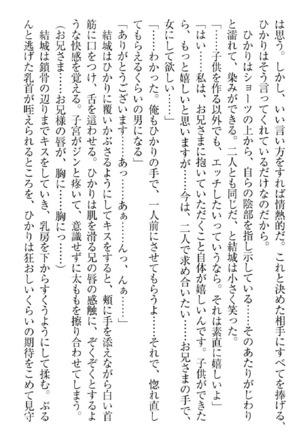 は思う。しかし、いい言い方をすれば情熱的だ。これと決めた相手にすべてを捧げる。
ひかりはそう言ってくれているだけなのだから。
ひかりはショーツの上から、自らの陰部を指し示している……そのあたりがじわり
と濡れて、染みができる。二人とも同じだ、と結城は小さく笑った。
「……子供を作る以外でも、エッチしたいっていうなら。それは素直に嬉しいよ」
「はい……私は、お兄さまに抱いていただくこと自体が嬉しいんです。子供ができた
ら、もっと嬉しいと思いますが……今は、二人で求め合いたい……お兄さまの手で、
女にして欲しい……」
「……わかった。俺もひかりの手で、一人前にさせてもらうよ……それで、惚れ直し
てもらえるくらいの男になる」
「ありがとうございます……あっ……あぁ……んっ、んぁ……」
結城はひかりに覆いかぶさるようにしてキスをすると、頬に手を添えながら白い首
筋に口をつけ、舌を這わせる。ひかりは肌を滑る兄の唇の感触に、ぞくぞくとするよ
うな快感を覚える。子宮がジンと疼いて、意識せずに太ももを擦り合わせてしまう。
（お兄さま……お兄さまの唇が、胸に……胸にっ……）
結城は鎖骨の辺りまでキスをしていき、乳房を下からすくうようにして揉む。ぷる
んと逃げた乳首が咥えられるところを、ひかりは狂おしいくらいの期待をこめて見守